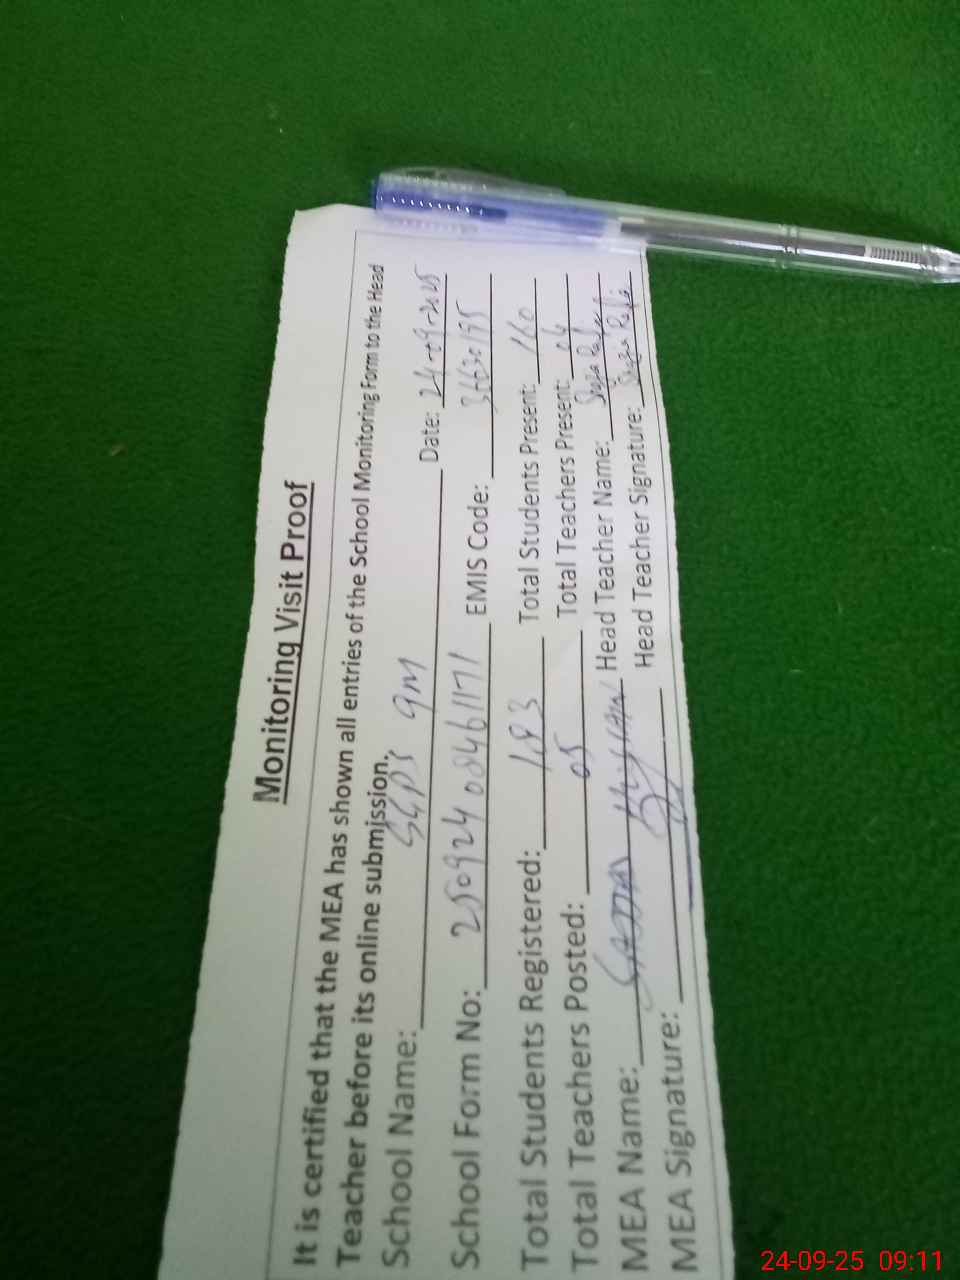 Monitoring Visit Proof
It is certified that the MEA has shown all entries of the School Monitoring Form to the Head
Teacher before its online submission.
School Name: SGPS 9M Date: 24-09-2025
School Form No: 25092408461171 EMIS Code: 36630195
Total Students Registered: 183 Total Students Present: 160
Total Teachers Posted: 05 Total Teachers Present: 04
MEA Name: Head Teacher Name:
MEA Signature: Head Teacher Signature:
24-09-25 09:11